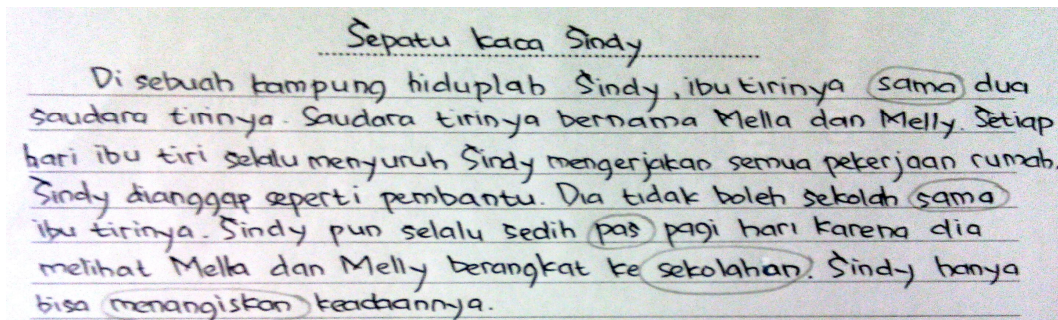 Sepatu kaca Sindy
Di sebuah kampung hiduplah Sindy, ibu tirinya sama dua
saudara tirinya. Saudara tirinya bernama Mella dan Melly. Setiap
hari ibu tiri selalu menyuruh Sindy mengerjakan semua pekerjaan rumah.
Sindy dianggap seperti pembantu. Dia tidak boleh sekolah sama
ibu tirinya. Sindy pun selalu sedih pas pagi hari karena dia
melihat Mella dan Melly berangkat ke sekolahan. Sindy hanya
bisa menangiskan keadaannya.